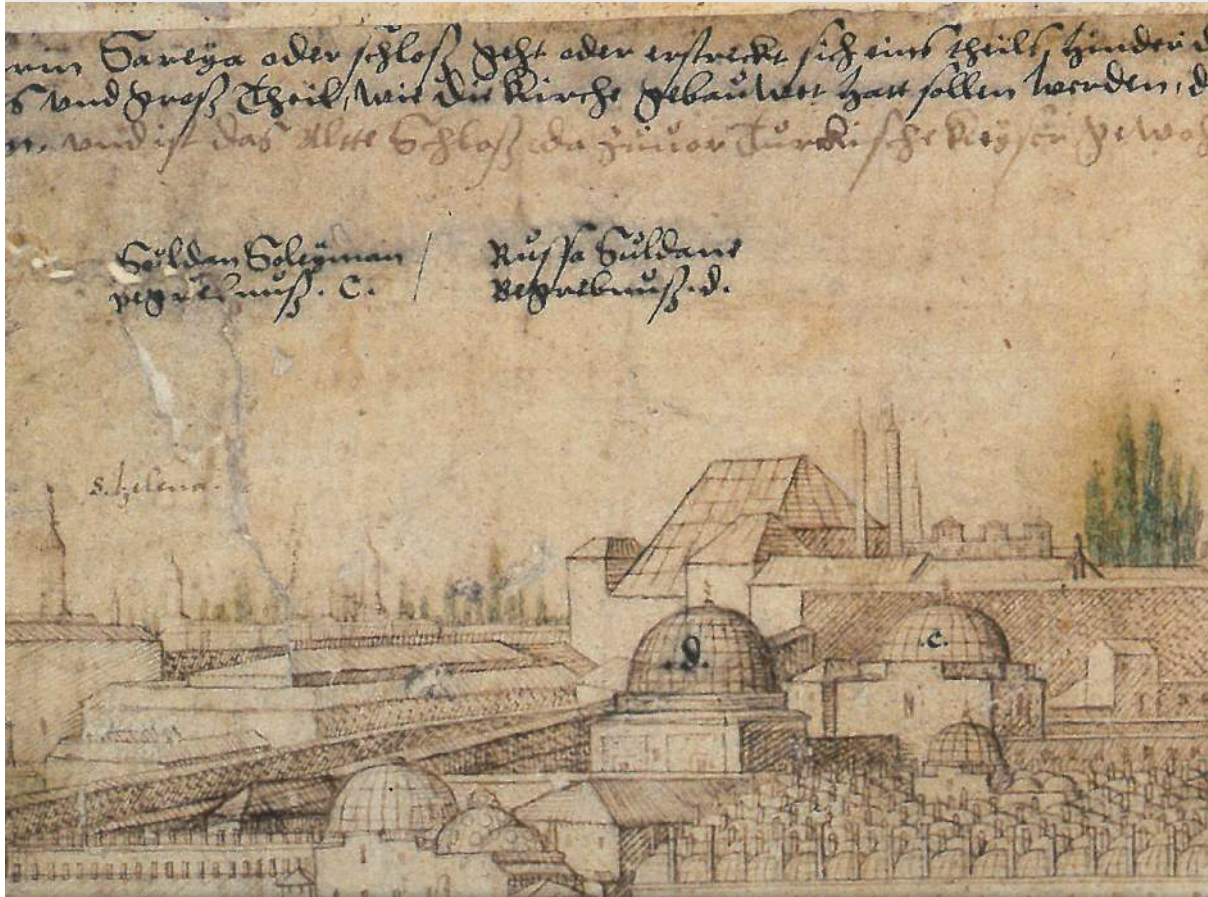 Sareÿa oder schloß geht oder erstreckt sich eins theils hinder
vnd groß Theil, wie die Kirche gebauwet hatt sollen werden, d
vnd ist das Alte Schloß da zuuor Turckische Keÿser gewoh
Suldan Soleÿman / Russa Suldane
begrebnuß. C. Begrebnuß. d.
S. helena.
.d. .c.